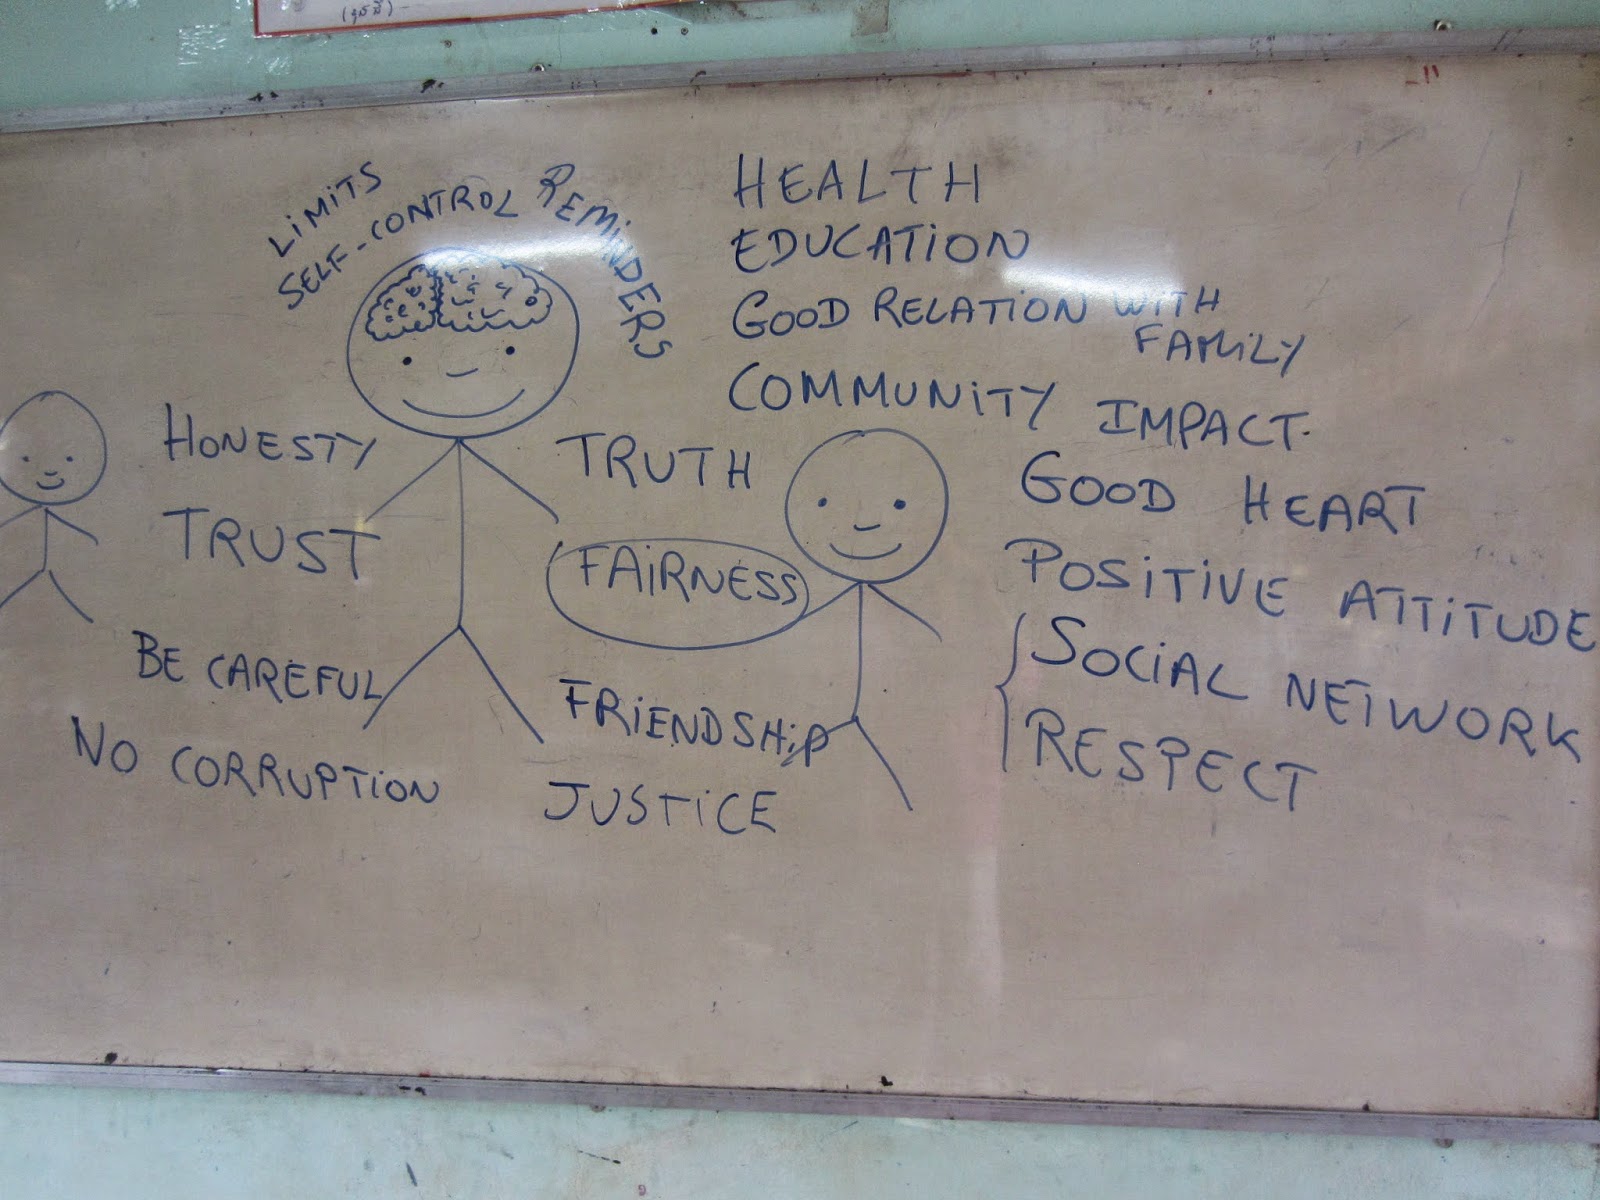 LIMITS
SELF-CONTROL REMINDERS
HONESTY
TRUST
BE CAREFUL
NO CORRUPTION
TRUTH
FAIRNESS
FRIENDSHIP
JUSTICE
HEALTH
EDUCATION
GOOD RELATION WITH
FAMILY
COMMUNITY IMPACT.
GOOD HEART
POSITIVE ATTITUDE
SOCIAL NETWORK
RESPECT